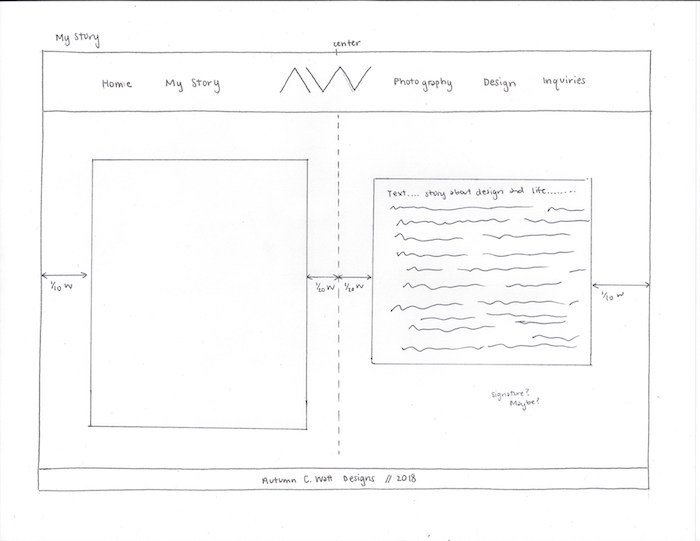 My Story
center
Home My Story AW Photography Design Inquiries
Text.... story about design and life........
1/10 W 1/20 W 1/20 W 1/10 W
Signature?
Maybe?
Autumn C. Watt Designs // 2018